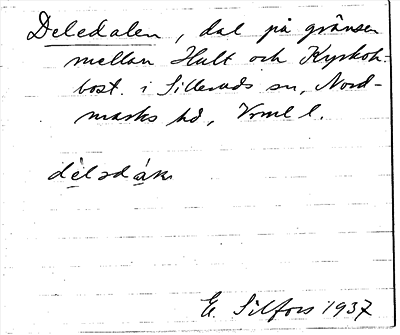 Deledalen, dal på gränsen
mellan Hult och Kyrkoh-
bost. i Silleruds sn, Nord-
marks hd, Vrml l.
E. Silfors 1937